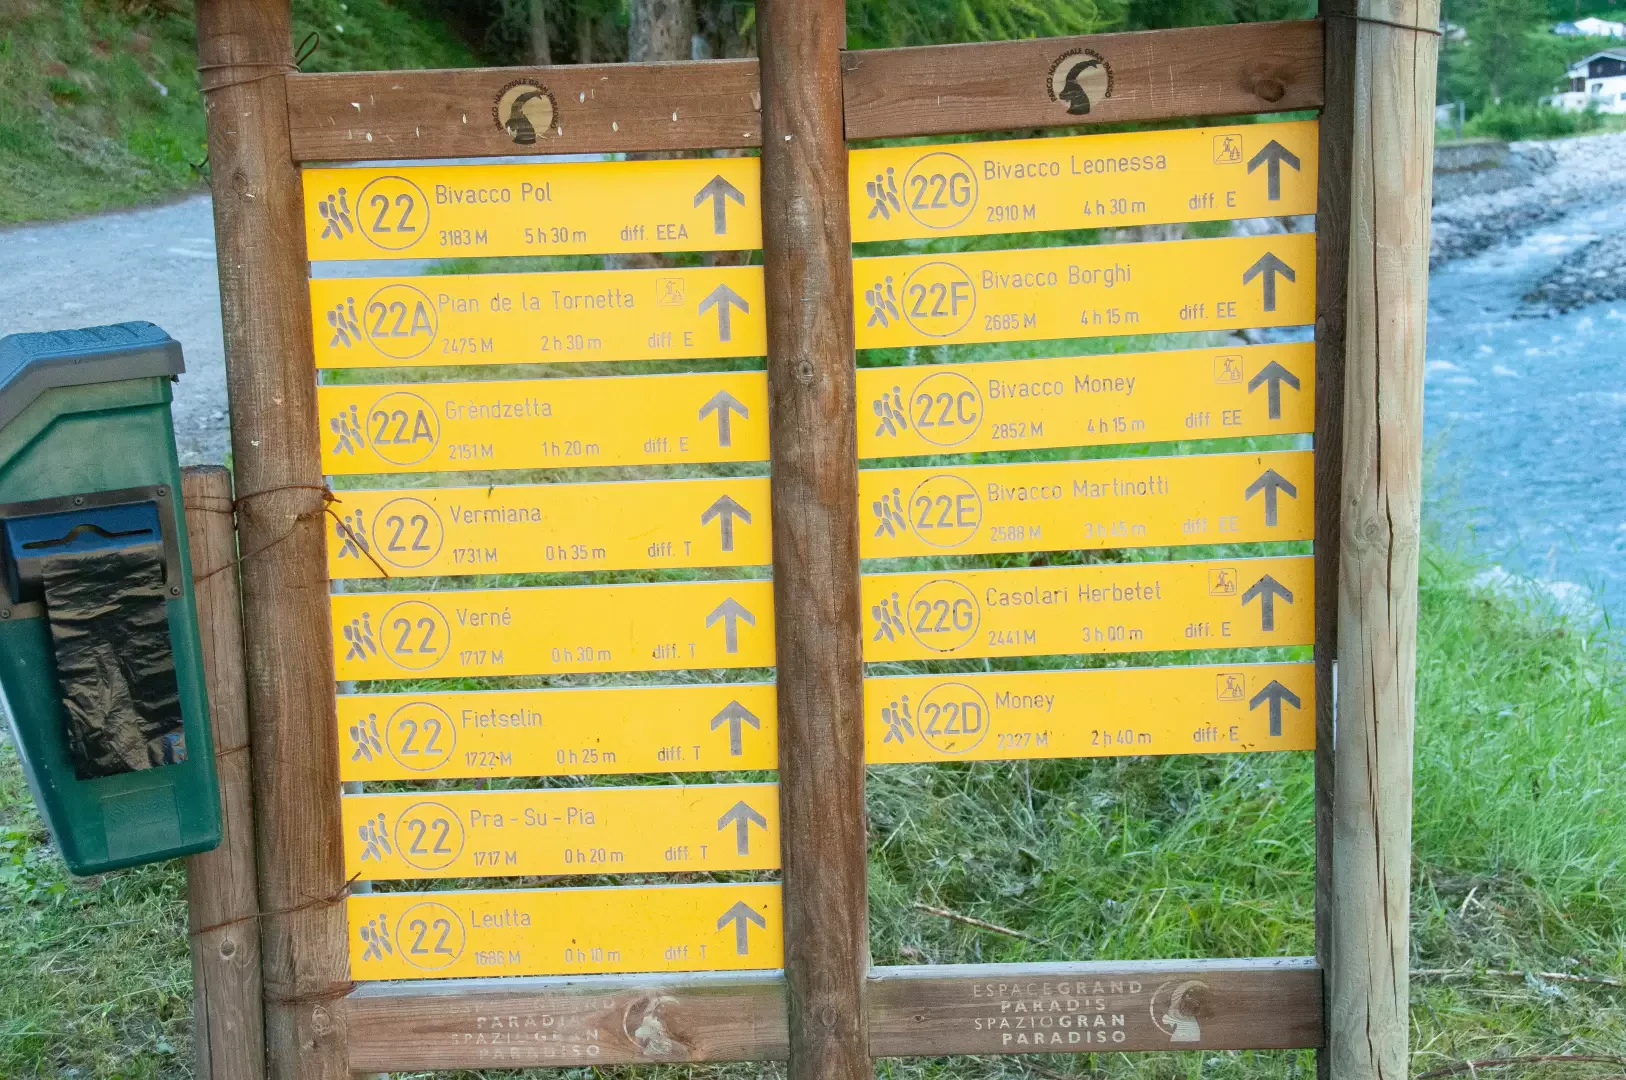 PARCO NAZIONALE GRAN PARADISO
22
Bivacco Pol
3183 M 5 h 30 m diff. EEA
22A
Pian de la Tornetta
2475 M 2 h 30 m diff. E
22A
Grèndzetta
2151 M 1 h 20 m diff. E
22
Vermiana
1731 M 0 h 35 m diff. T
22
Verné
1717 M 0 h 30 m diff. T
22
Fietselin
1722 M 0 h 25 m diff. T
22
Pra - Su - Pia
1717 M 0 h 20 m diff. T
22
Leutta
1686 M 0 h 10 m diff. T
ESPACEGRAND
PARADIS
SPAZIOGRAN
PARADISO
PARCO NAZIONALE GRAN PARADISO
22G
Bivacco Leonessa
2910 M 4 h 30 m diff. E
22F
Bivacco Borghi
2685 M 4 h 15 m diff. EE
22C
Bivacco Money
2852 M 4 h 15 m diff. EE
22E
Bivacco Martinotti
2588 M 3 h 45 m diff. EE
22G
Casolari Herbetet
2441 M 3 h 00 m diff. E
22D
Money
2327 M 2 h 40 m diff. E
ESPACEGRAND
PARADIS
SPAZIOGRAN
PARADISO